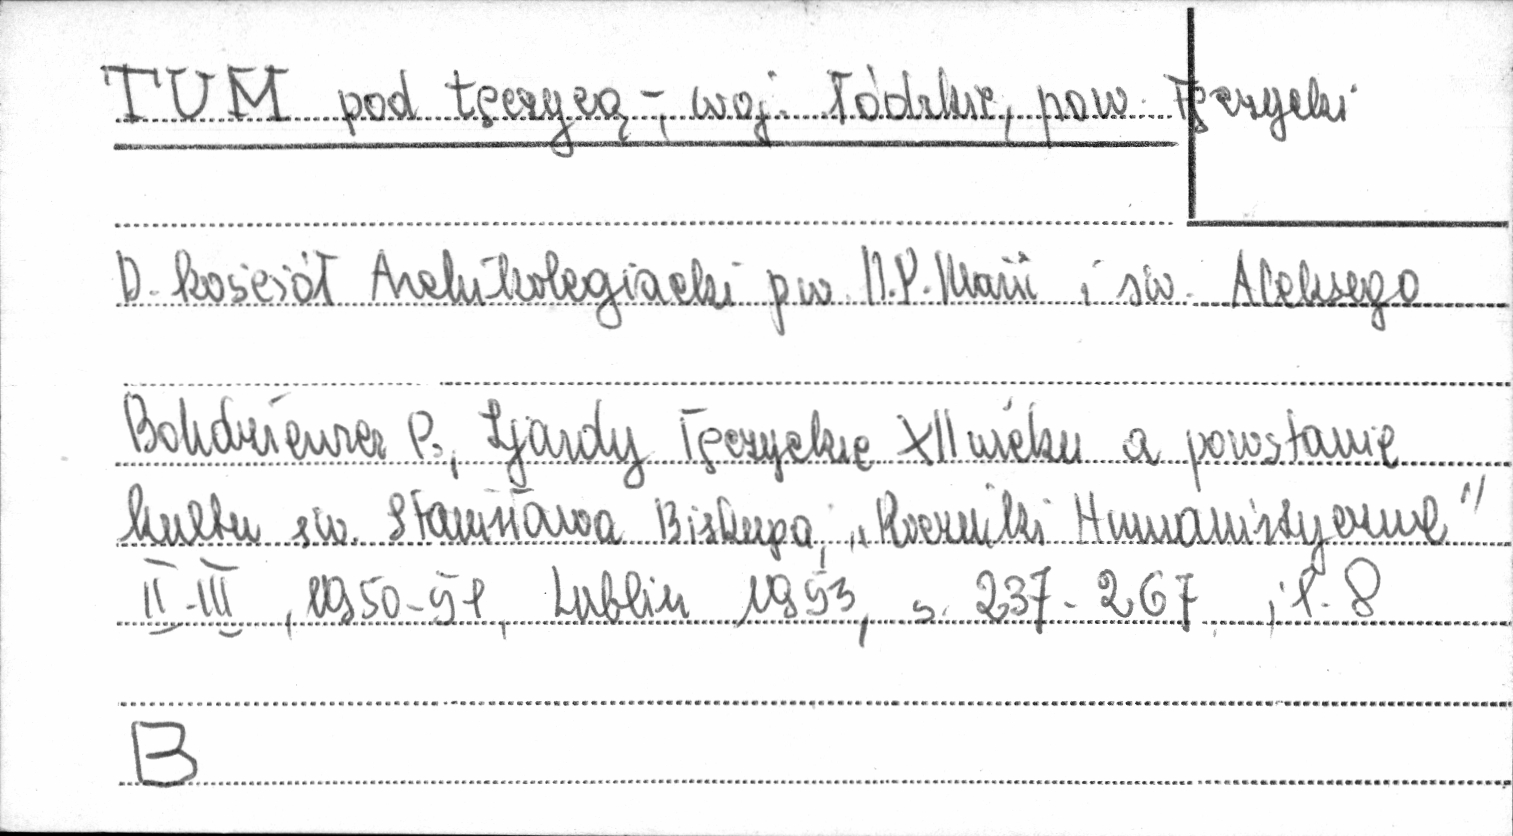 TUM pod Łęczycą -, woj. Łódzkie, pow. Łęczycki
D. kościół Archikolegiacki pw. N.P. Marii i św. Aleksego
Bohdziewicz P., Zjazdy Łęczyckie XII wieku a powstanie
kultu św. Stanisława Biskupa, „Roczniki Humanistyczne"
II-III, 1950-51, Lublin 1953, s. 237-267, f. 8
B